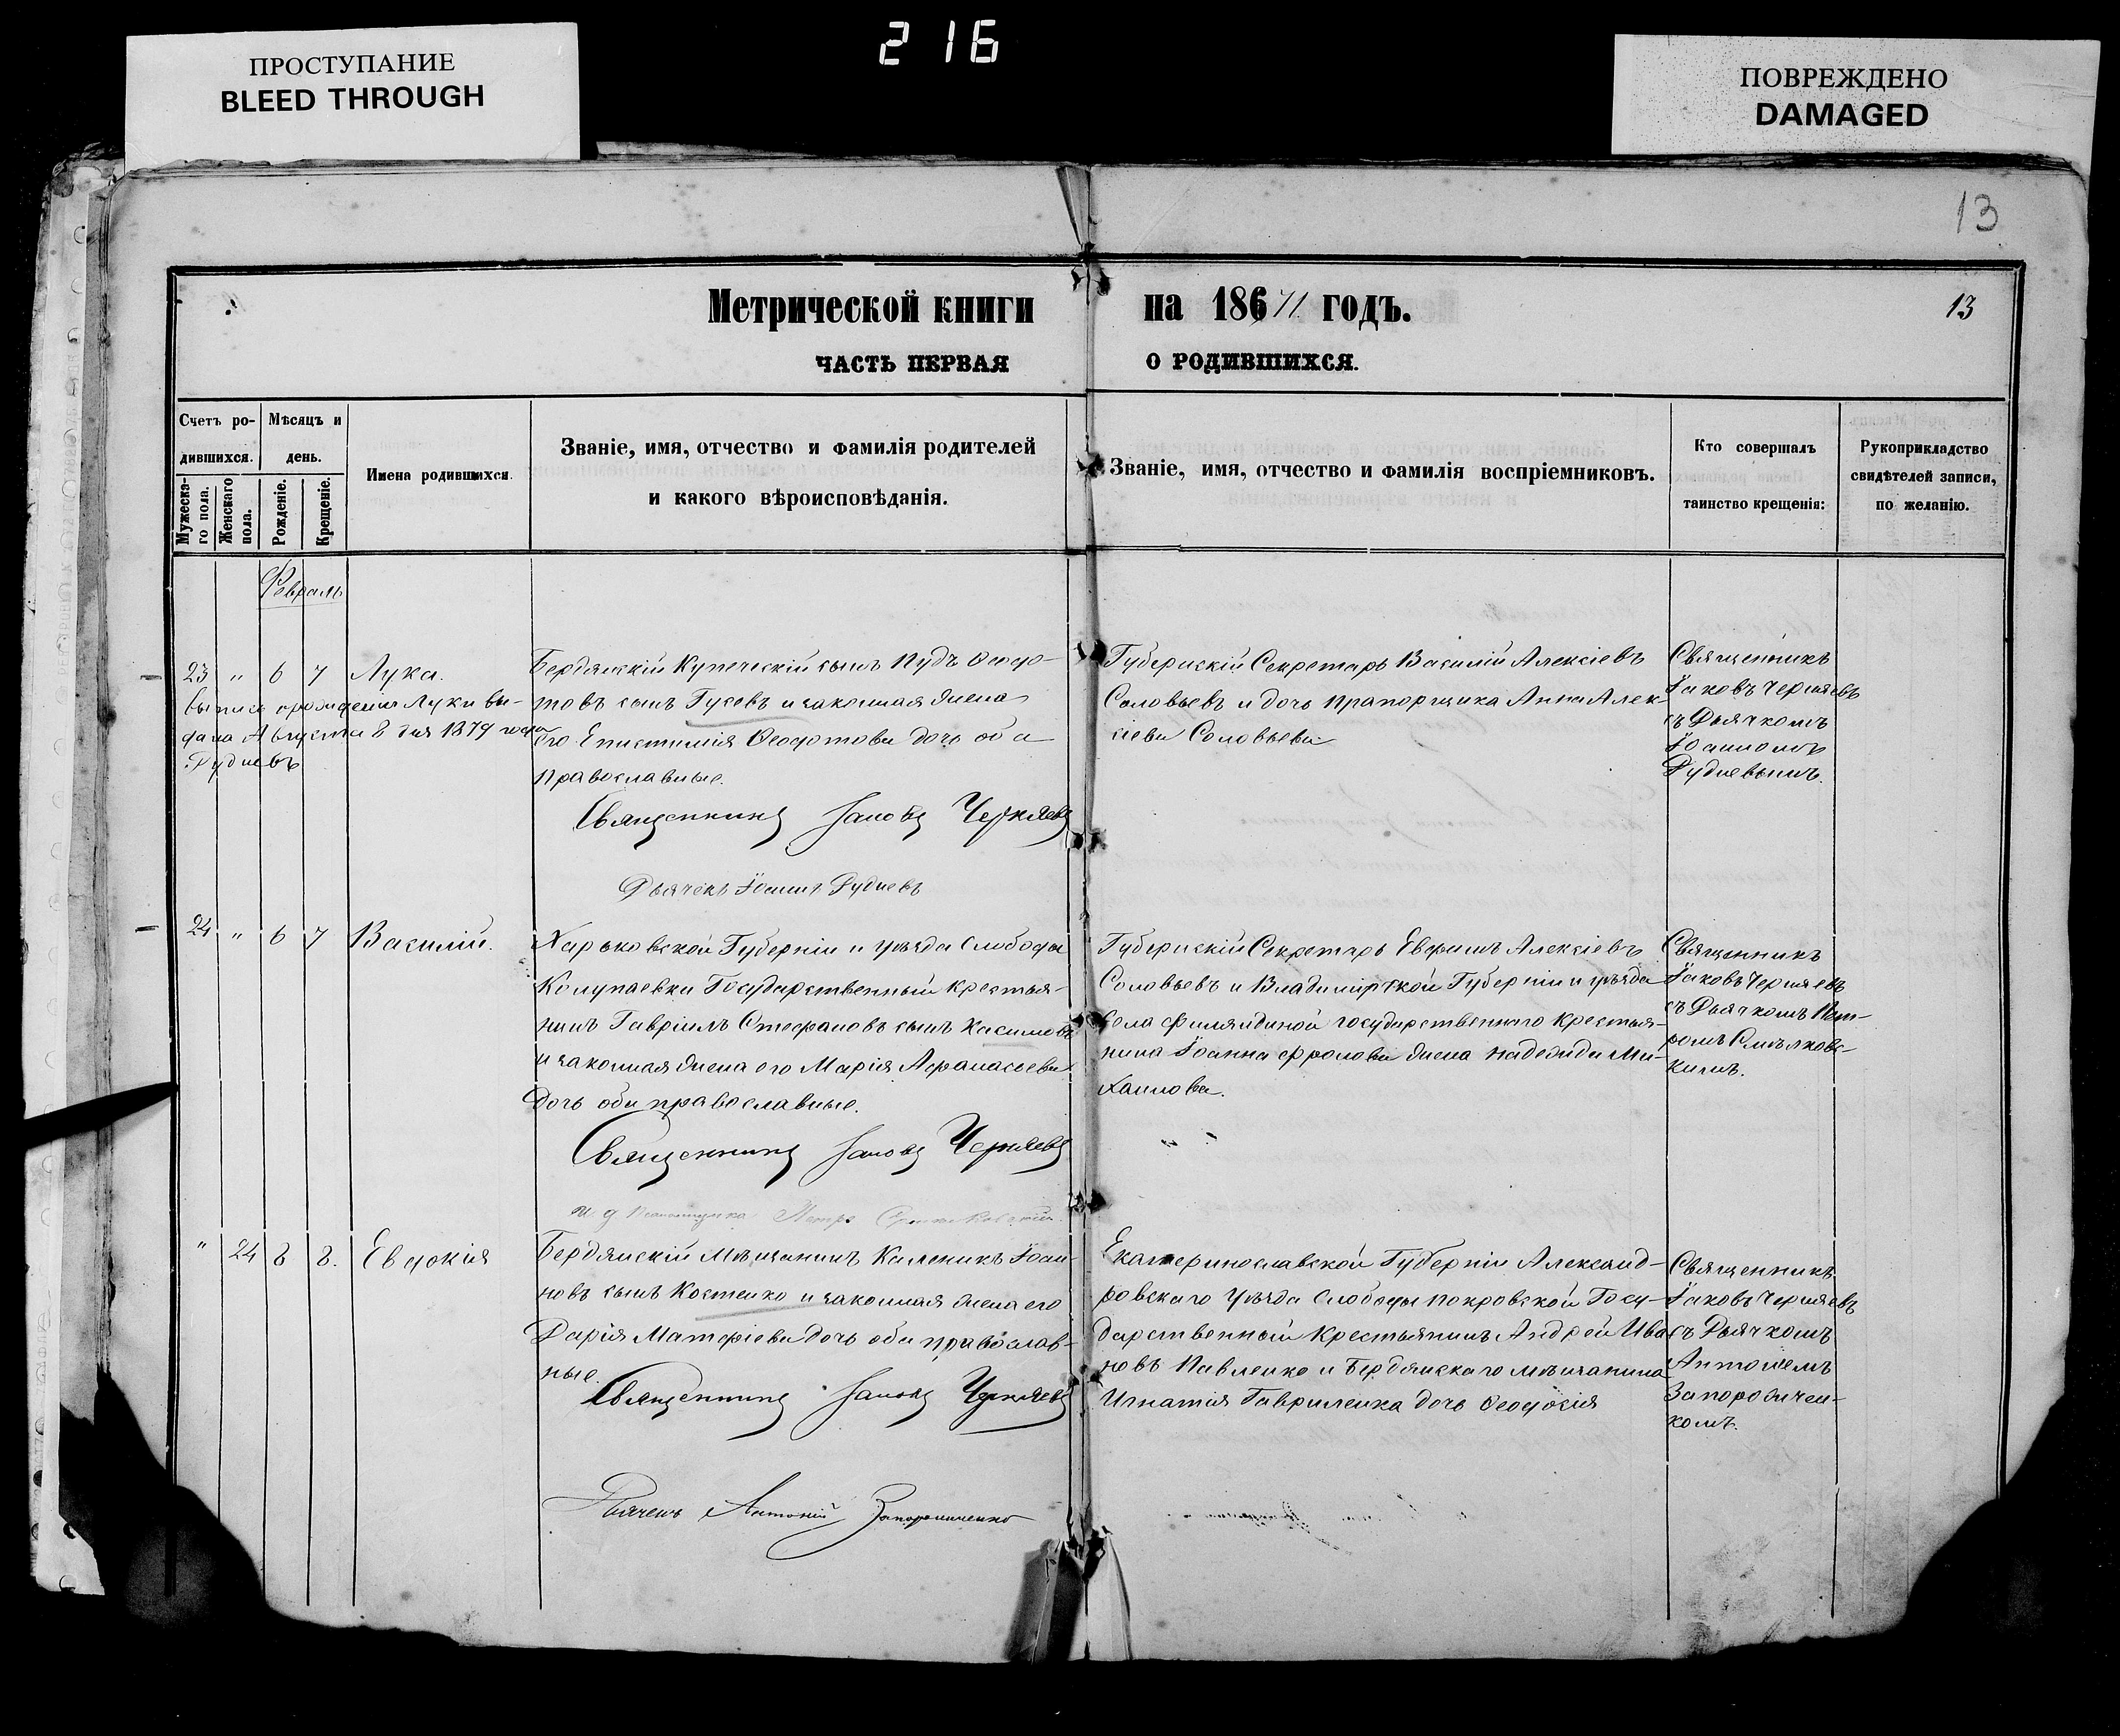 216
ПРОСТУПАНИЕ
BLEED THROUGH
ПОВРЕЖДЕНО
DAMAGED
13
Метрической книги на 18671 годъ.
13
ЧАСТЬ ПЕРВАЯ О РОДИВШИХСЯ.
Счетъ ро-
дившихся.
Мужеска-
го пола.
Женскаго
пола.
Мѣсяцъ и
день.
Рожденіе.
Крещеніе.
Имена родившихся.
Званіе, имя, отчество и фамилія родителей
и какого вѣроисповѣданія.
Званіе, имя, отчество и фамилія воспріемниковъ.
Кто совершалъ
таинство крещенія:
Рукоприкладство
свидѣтелей записи,
по желанію.
Февраль
23 " 6 7 Лука.
выпись о рожденіи Луки вы-
дана Августа 8 дня 1879 года
Рудневъ
Бердянскій Купеческій сынъ Пудъ Ѳеодо-
товъ сынъ Гусевъ и законная жена
его Епистимія Ѳеодотова дочь оба
православные.
Священникъ Іаковъ Черняевъ
Дьячекъ Іоаннъ Рудневъ
Губернскій Секретарь Василій Алексіевъ
Соловьевъ и дочь прапорщика Анна Алек-
сіева Соловьева
Священникъ
Іаковъ Черняевъ
съ Дьячкомъ
Іоанномъ
Рудневымъ.
24 " 6 7 Василій.
Харьковской Губерніи и уѣзда Слободы
Колупаевки Государственный крестья-
нинъ Гавріилъ Стефановъ сынъ Касимовъ
и законная жена его Марія Афанасьева
дочь оба православные.
Священникъ Іаковъ Черняевъ
и. д. Псаломщика Петръ
Губернскій Секретарь Евфимъ Алексіевъ
Соловьевъ и Владимірской Губерніи и уѣзда
Села государственнаго крестья-
нина Іоанна Фролова жена Надежда Ми-
хаилова.
Священникъ
Іаковъ Черняевъ
съ Дьячкомъ Пет-
ромъ
кимъ.
" 24 8 8. Евдокія
Бердянскій Мѣщанинъ Каленикъ Іоан-
новъ сынъ Костенко и законная жена его
Дарія Матфіева дочь оба православ-
ные.
Священникъ Іаковъ Черняевъ
Дьячекъ Антоній Запорожченко
Екатеринославской Губерніи Александ-
ровскаго Уѣзда Слободы Покровской Госу-
дарственный крестьянинъ Андрей Ива-
новъ Павленко и Бердянскаго мѣщанина
Игнатія Гавриленка дочь Ѳеодосія
Священникъ
Іаковъ Черняевъ
съ Дьячкомъ
Антоніемъ
Запорожчен-
комъ.